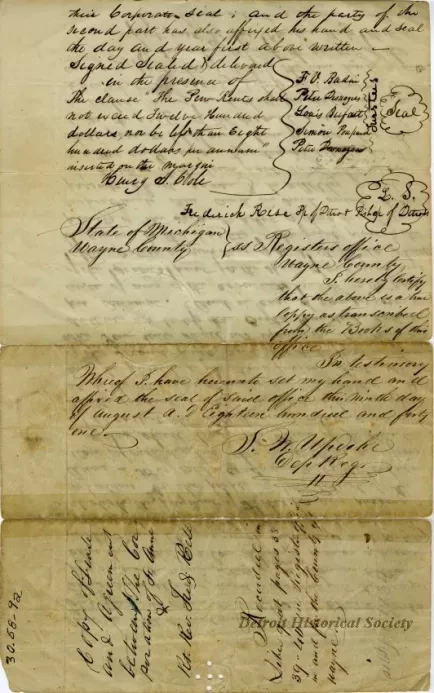 their Corporate Seal; and the party of the
second part has also affixed his hand and seal
the day and year first above written
Signed Sealed & delivered
in the presence of
The clause "The Pew Rents shall
not exceed Twelve Hundred
dollars nor be less than Eight
hundred dollars per annum"
inserted on the margin
Henry S. Cole
Peter Desnoyers
Louis
Simon
Peter
Trustees
Seal
Frederick Rese Bp of Detroit Bishop of Detroit
L. S.
State of Michegan
Wayne County
SS Registers office
Wayne County
I hereby certify
that the above is a true
Coppy as transcribed
from the Books of this
office
In testimony
Whereof I have hereunto set my hand and
affixed the seal of said office this Ninth day
of August A. D Eighteen hundred and forty
one.
Dep Regr
Copy of
and Agreement
between the Cor
poration of St Anne
&
Rt. Rev. Fredk Rese
Recorded in
Liber Pages 38
39
in and for the County of
Wayne
30.58.92
Detroit Historical Society